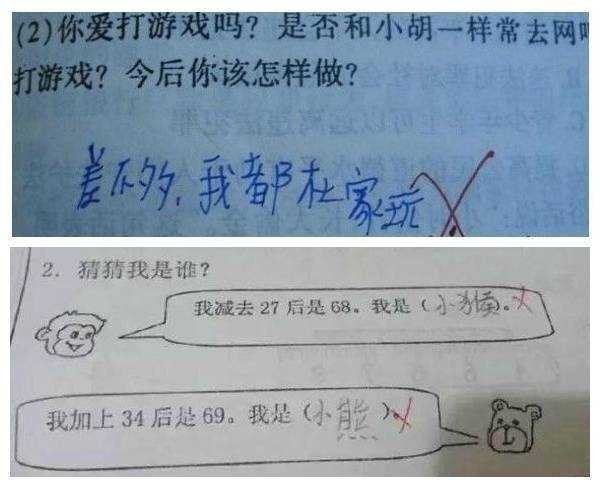 (2)你爱打游戏吗？是否和小胡一样常去网吧
打游戏？今后你该怎样做？
差不多，我都在家玩
2. 猜猜我是谁？
我减去 27 后是 68。我是（小猴）。
我加上 34 后是 69。我是（小熊）。